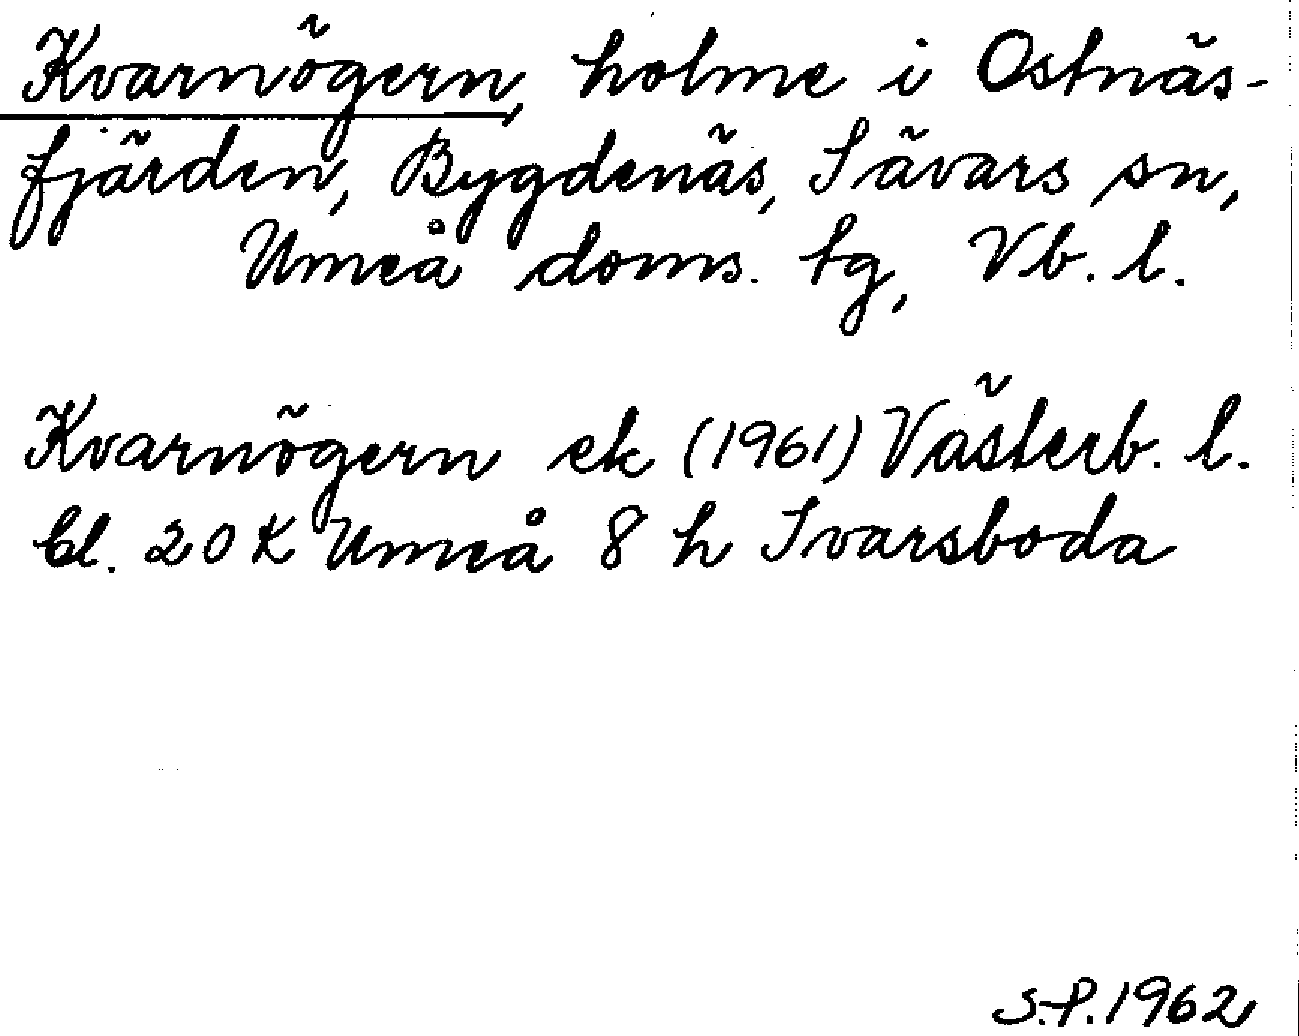 Kvarnögern, holme i Ostnäs-
fjärden, Bygdenäs, Sävars sn,
Umeå doms. tg, Vb. l.
Kvarnögern ek (1961) Västerb. l.
bl. 20 K Umeå 8 h Ivarsboda
S.P. 1962